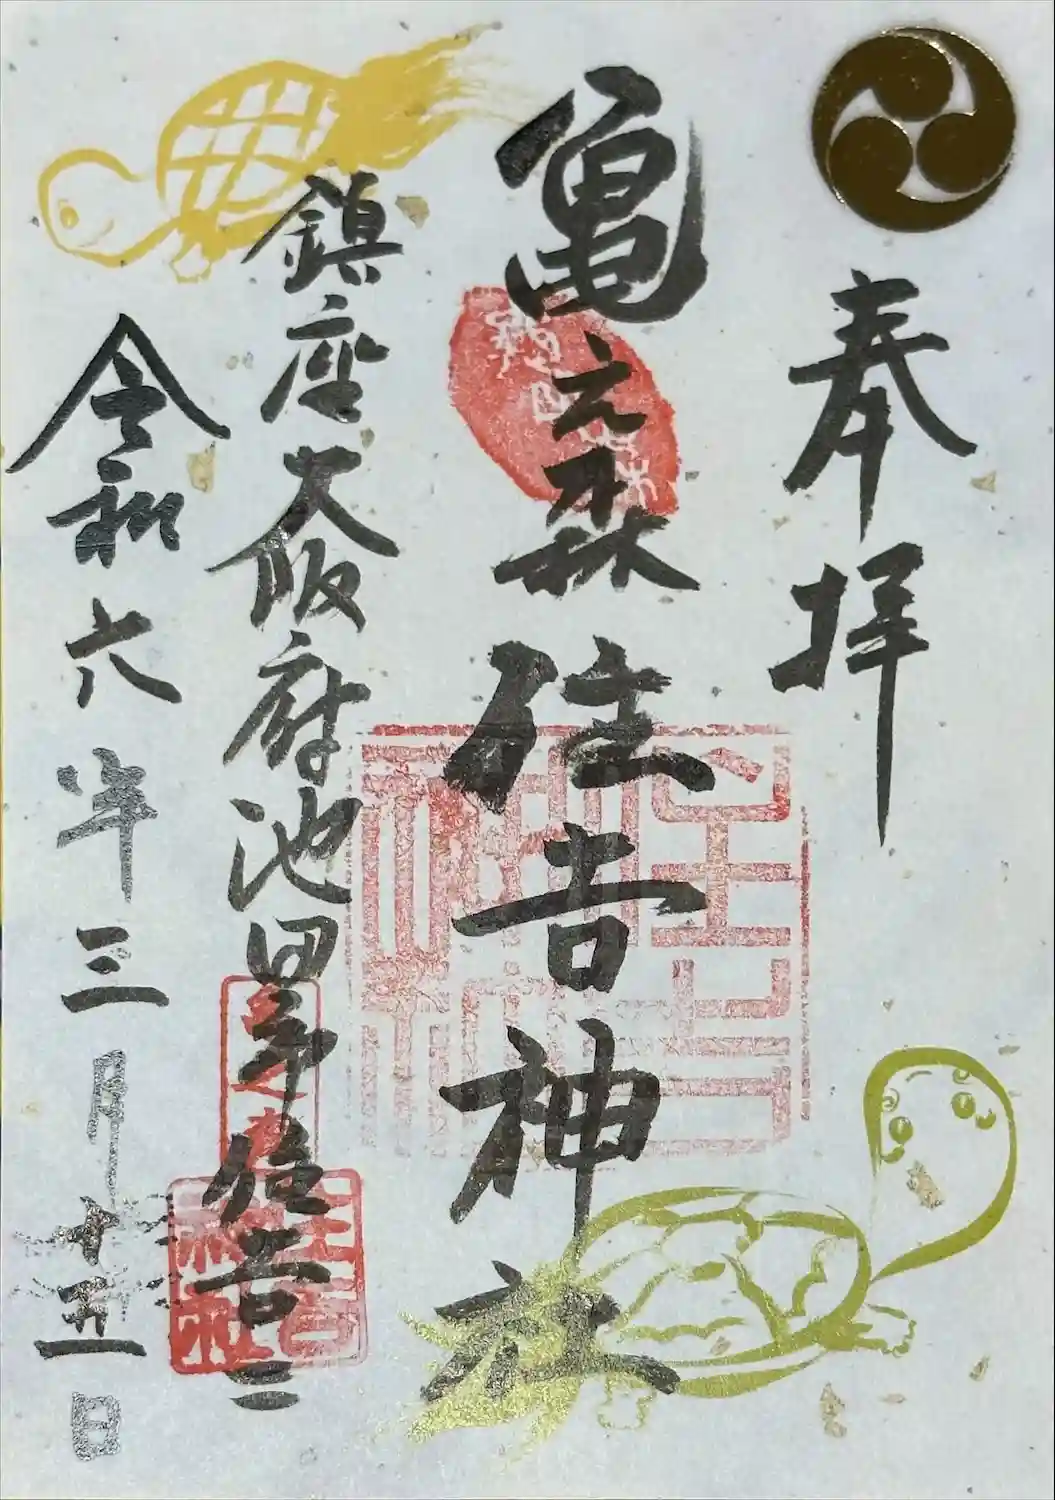 奉拝
亀之森住吉神社
鎮座大阪府池田市住吉二
令和六年三月十五日
住吉神社